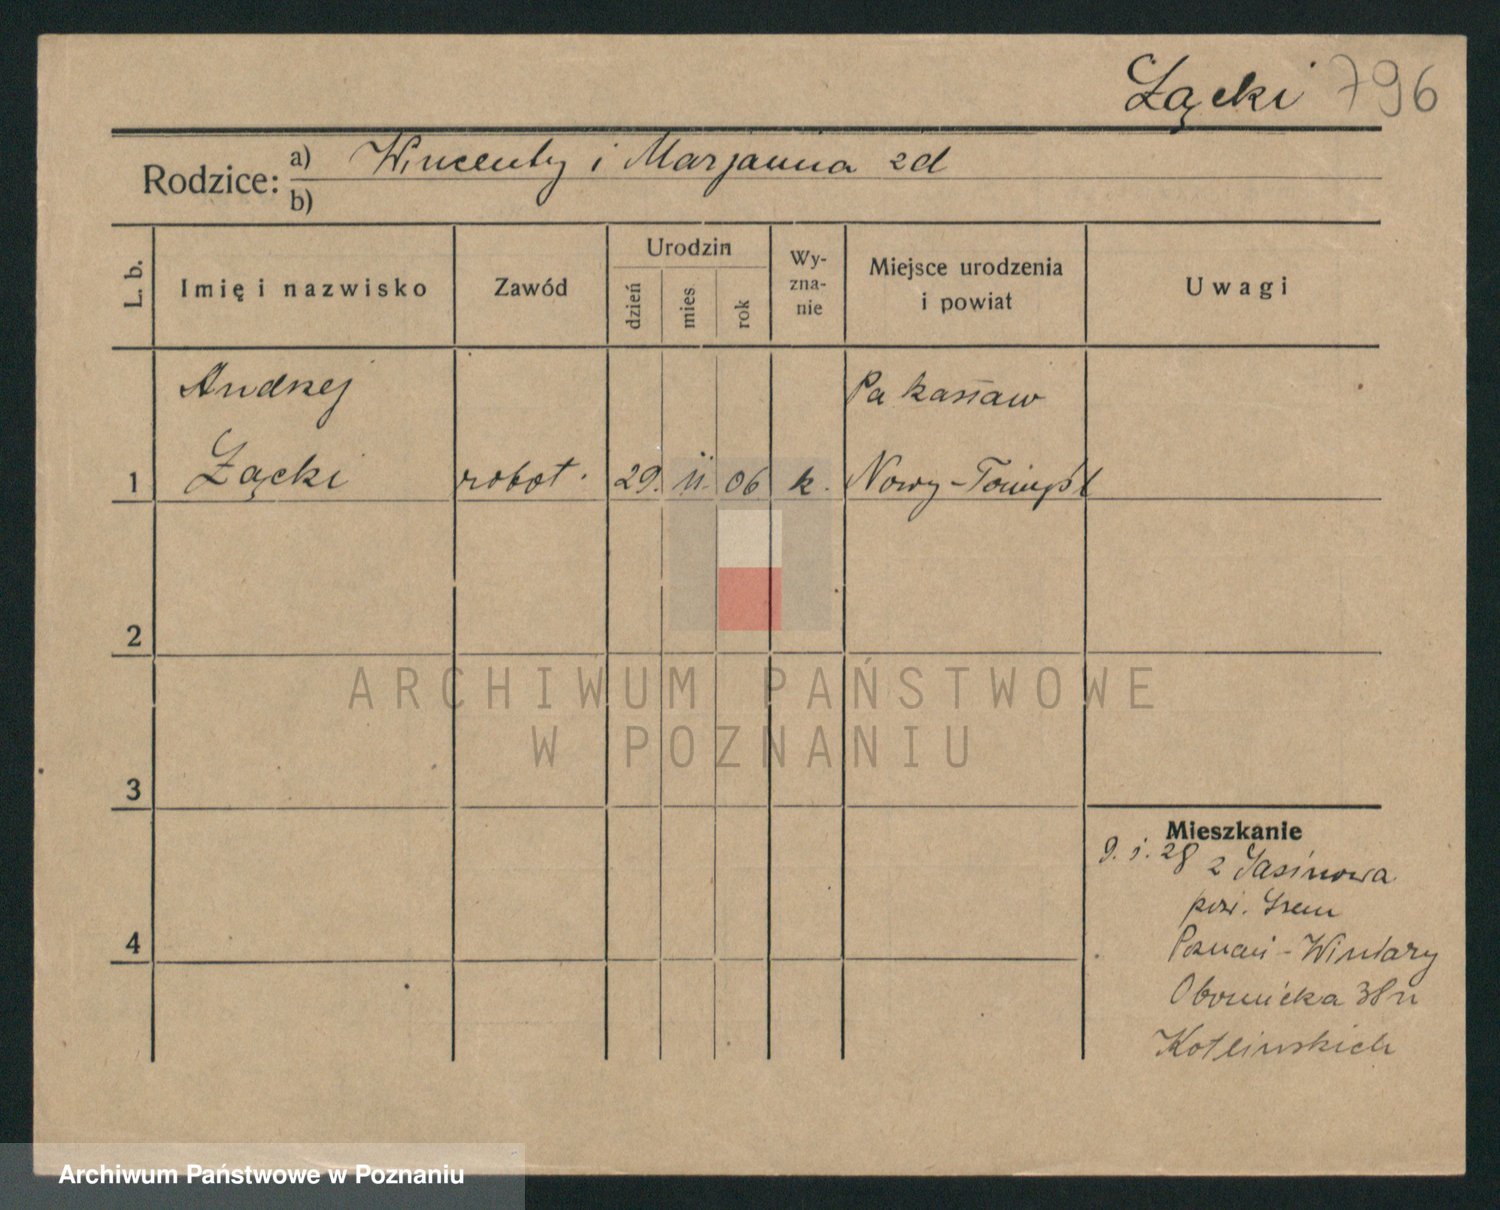 Łącki 796
Rodzice: a) Wincenty i Marjanna zd
b)
L. b.
Imię i nazwisko
Zawód
Urodzin
dzień
mies
rok
Wy-
zna-
nie
Miejsce urodzenia
i powiat
Uwagi
Andrzej
Pakosław
1 Łącki robot. 29. 11. 06 k. Nowy-Tomyśl
2
ARCHIWUM PAŃSTWOWE
W POZNANIU
3
Mieszkanie
9. 28 z Jasinowa
pow. Śrem
4
Poznań - Winiary
Obornicka 38
Kotlinskich
Archiwum Państwowe w Poznaniu